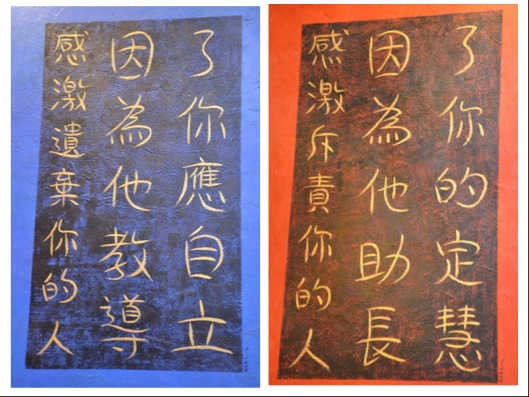 感激遺棄你的人
因為他教導
了你應自立
感激斥責你的人
因為他助長
了你的定慧